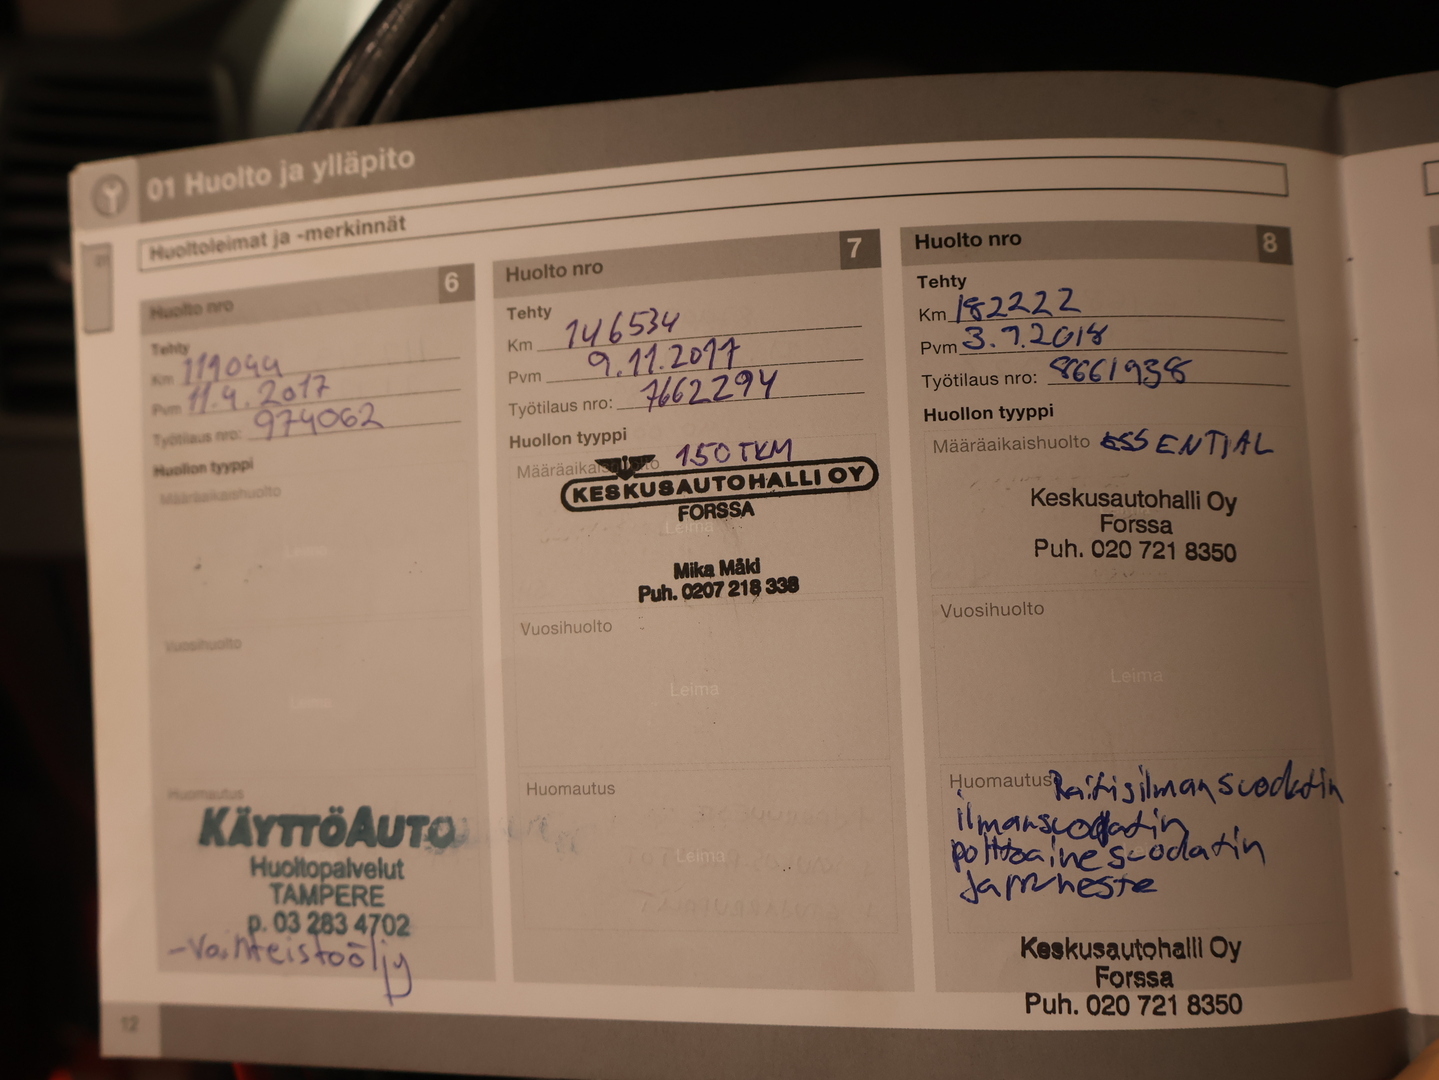 01 Huolto ja ylläpito
Huoltoleimat ja -merkinnät
Huolto nro 6
Tehty
Km 111044
Pvm 11.4.2017
Työtilaus nro: 974062
Huollon tyyppi
Määräaikaishuolto
Leima
Vuosihuolto
Leima
Huomautus
KÄYTTÖAUTO
Huoltopalvelut
TAMPERE
p. 03 283 4702
-Vaihteistoöljy
Huolto nro 7
Tehty
Km 146534
Pvm 9.11.2017
Työtilaus nro: 7662294
Huollon tyyppi
Määräaikaishuolto 150 TKM
KESKUSAUTOHALLI OY
FORSSA
Leima
Mika Mäki
Puh. 0207 218 338
Vuosihuolto
Leima
Huomautus
Leima
Huolto nro 8
Tehty
Km 182222
Pvm 3.7.2018
Työtilaus nro: 8661938
Huollon tyyppi
Määräaikaishuolto ESSENTIAL
Keskusautohalli Oy
Forssa
Puh. 020 721 8350
Vuosihuolto
Leima
Huomautus Raitisilmansuodatin
ilmansuodatin
polttoainesuodatin
Jarruneste
Keskusautohalli Oy
Forssa
Puh. 020 721 8350
12